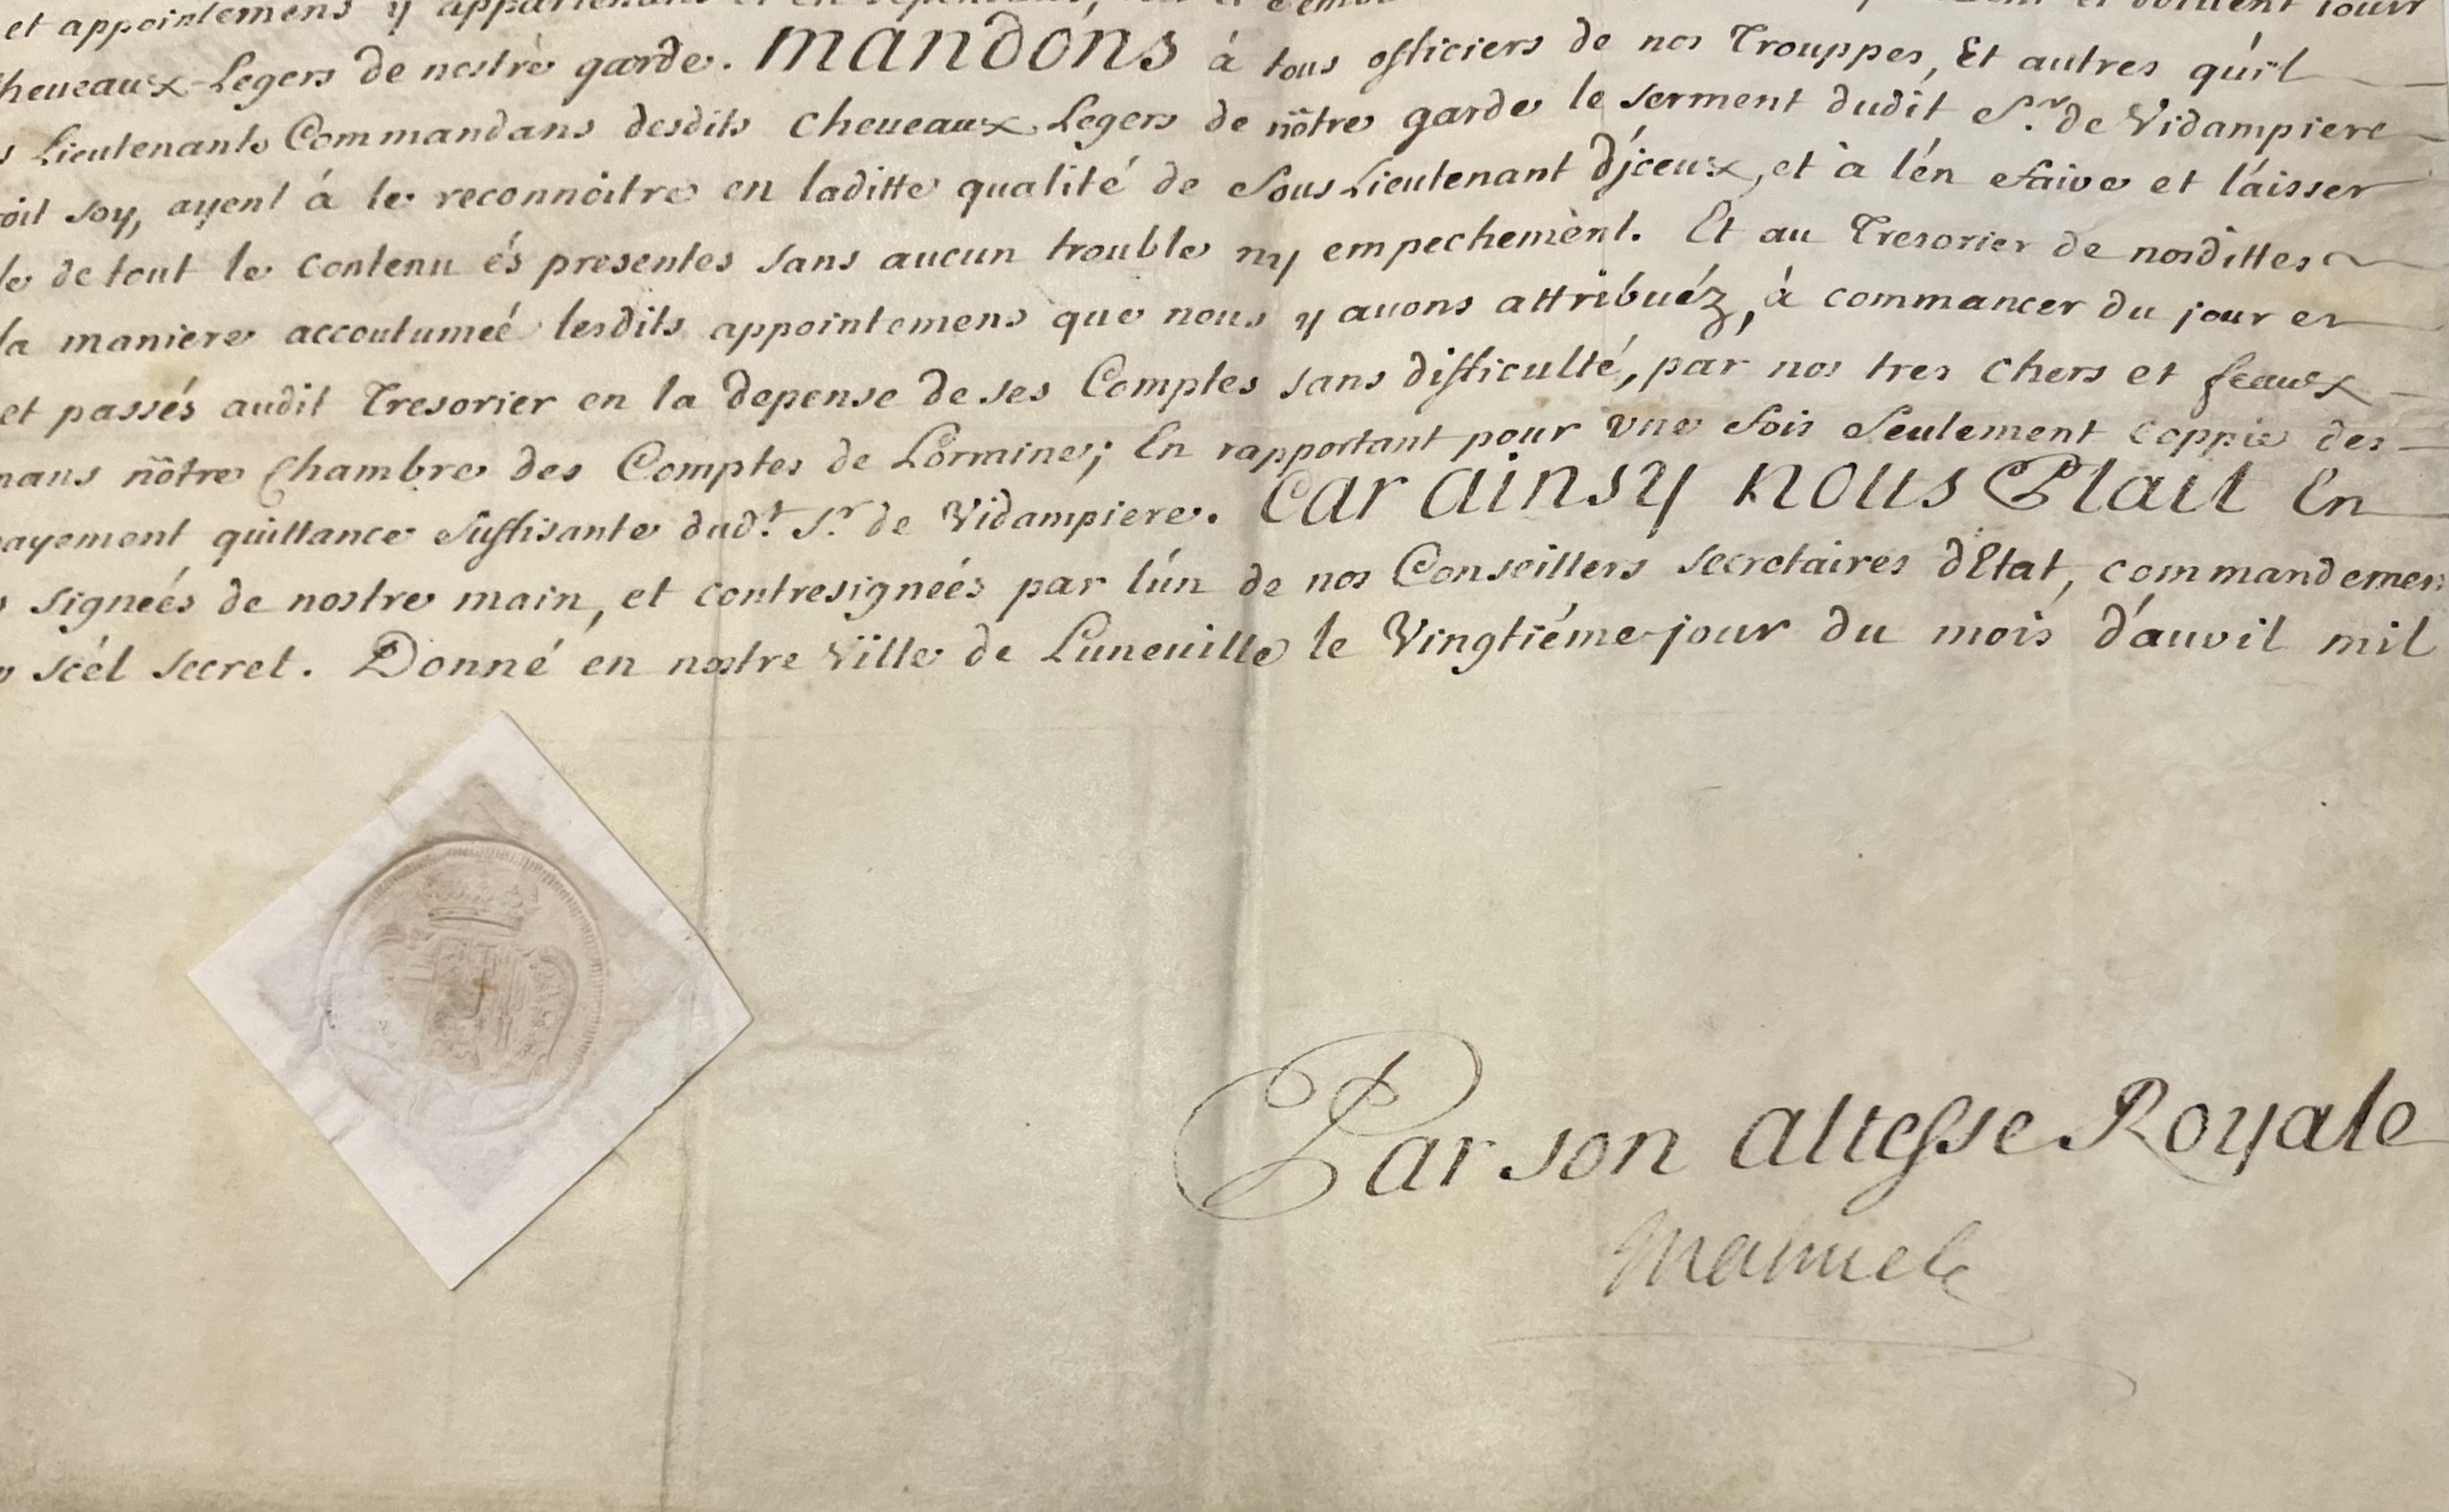 et appointemens y appartenans et en
heueaux-Legers de nostre garde. Mandons à tous officiers de nos Trouppes, Et autres qu'il
s Lieutenants Commandans desdits cheueaux Legers de nôtre garde le serment dudit Sr. de Vidampiere
oit soy, ayent á le reconnoitre en laditte qualité de Sous Lieutenant d'jceux, et à l'én faire et láisser
le de tout le contenu és presentes sans aucun trouble ny empechemènt. Et au Tresorier de nosdittes
la maniere accoutumeé lesdits appointemens que nous y auons attribuéz, à commancer du jour et
et passés audit Tresorier en la depense de ses Comptes sans difficulté, par nos tres chers et feaux
nans nôtre Chambre des Comptes de Lorraine; En rapportant pour vne fois seulement coppie des
ayement quittance suffisante dudt. Sr. de Vidampiere. Car ainsy nous Plait En
s signeés de nostre main, et contresigneés par l'ún de nos Conseillers secretaires d'Etat, commandemen
u scél secret. Donné en nostre ville de Luneuille le Vingtiéme jour du mois d'auril mil
Par son altesse Royale
Mahuet